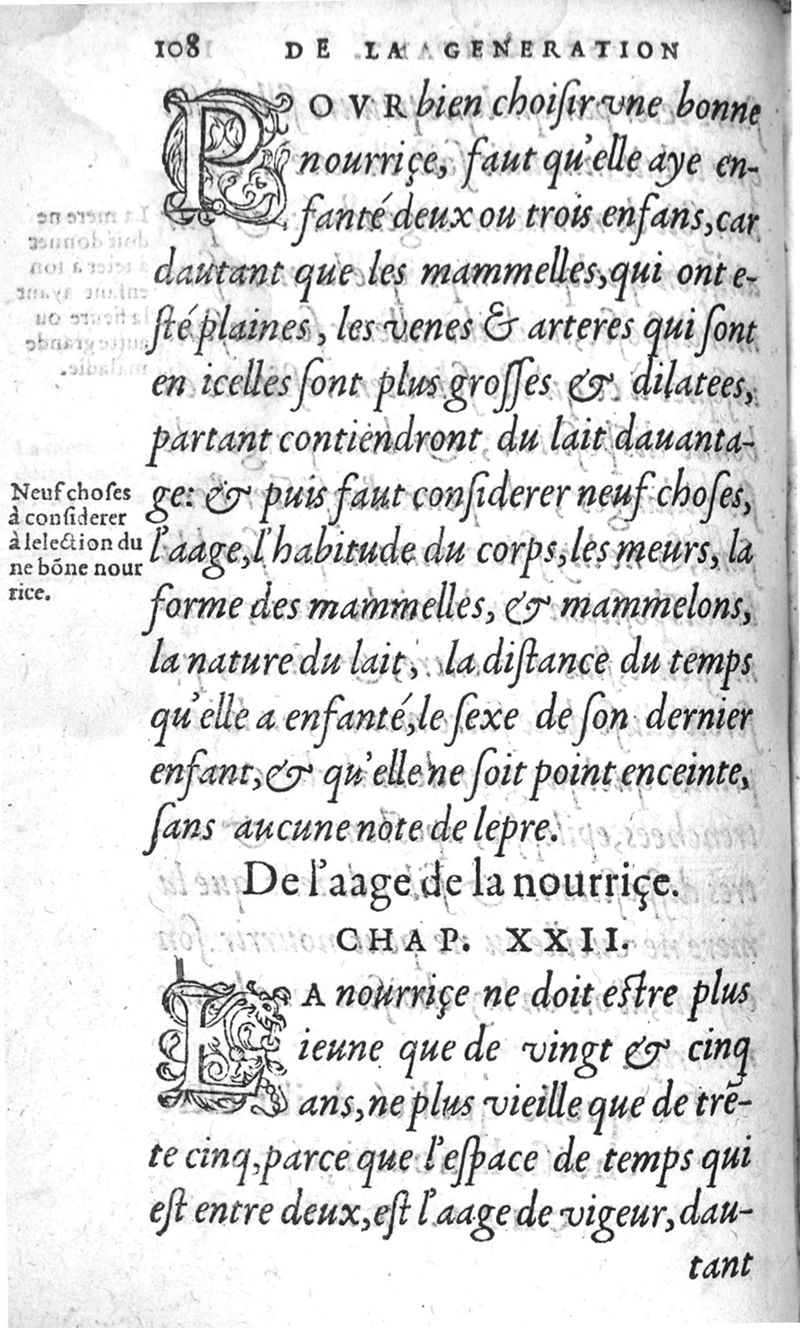 108 DE LA GENERATION
POVR bien choiſir vne bonne
nourriçe, faut qu'elle aye en-
fanté deux ou trois enfans, car
dautant que les mammelles, qui ont e-
ſté plaines, les venes & arteres qui ſont
en icelles ſont plus groſſes & dilatees,
partant contiendront du lait dauanta-
ge: & puis faut conſiderer neuf choſes,
l'aage, l'habitude du corps, les meurs, la
forme des mammelles, & mammelons,
la nature du lait, la diſtance du temps
qu'elle a enfanté, le ſexe de ſon dernier
enfant, & qu'elle ne ſoit point enceinte,
ſans aucune note de lepre.
Neuf choſes
à conſiderer
à lelection du
ne bōne nour
rice.
De l'aage de la nourriçe.
CHAP. XXII.
LA nourriçe ne doit eſtre plus
ieune que de vingt & cinq
ans, ne plus vieille que de trē-
te cinq, parce que l'eſpace de temps qui
eſt entre deux, eſt l'aage de vigeur, dau-
tant